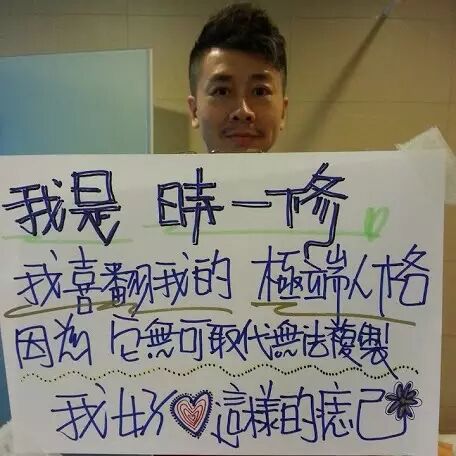 我是 時一修
我喜翻我的 極端人格
因為 它無可取代無法複製
我好 這樣的痣己